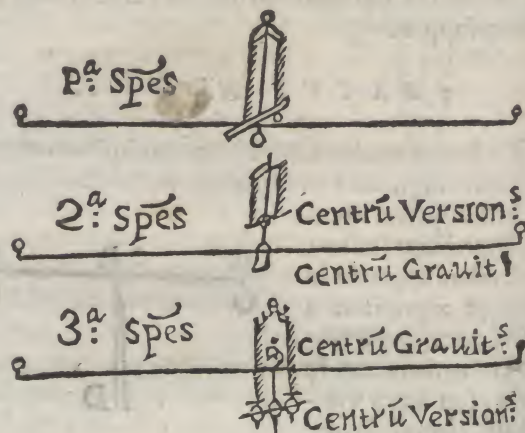 P.ª Spēs
2.ª Spēs
Centrū Version.ˢ
Centrū Grauit
3.ª Spēs
Centrū Grauit.ˢ
Centrū Version.ˢ